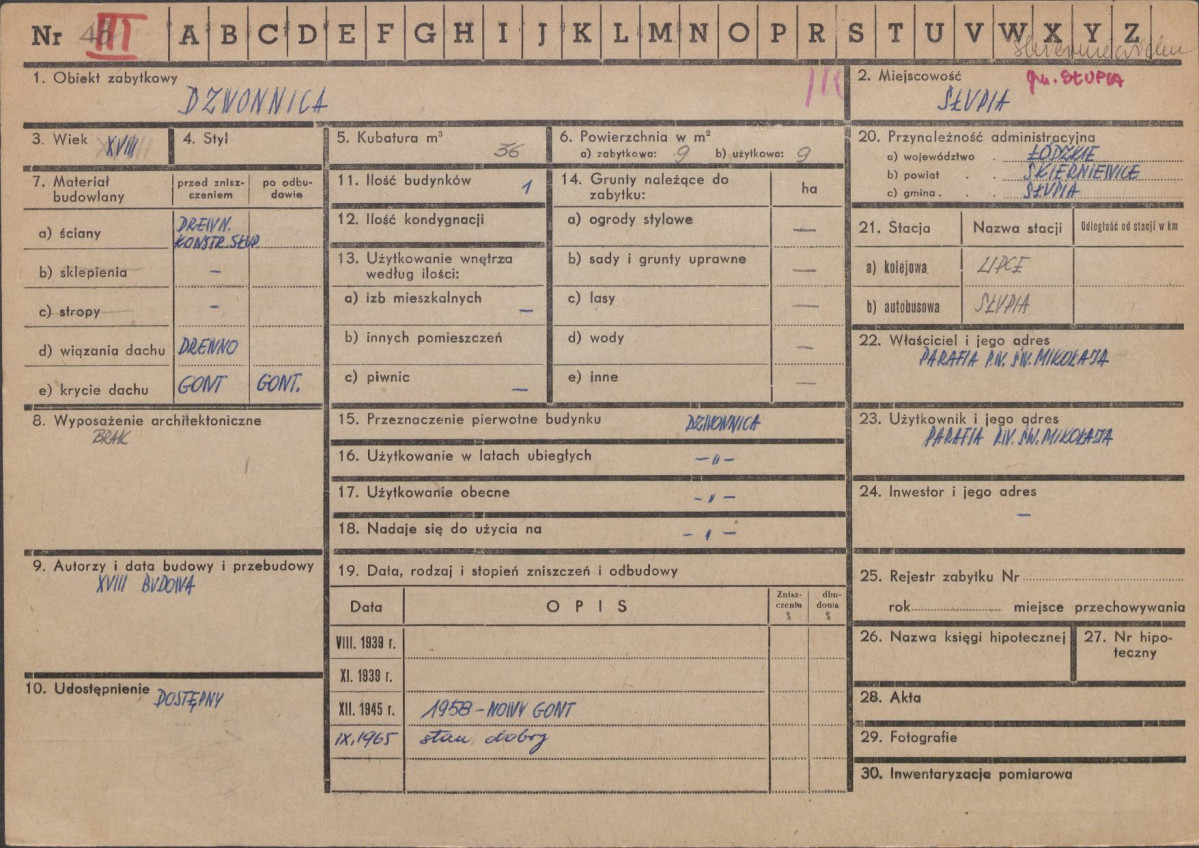 Nr III A B C D E F G H I J K L M N O P R S T U V W X Y Z
1. Obiekt zabytkowy
DZWONNICA
2. Miejscowość
gm. SŁUPIA
SŁUPIA
3. Wiek XVIII
4. Styl
5. Kubatura m³
36
6. Powierzchnia w m²
a) zabytkowa: 9 b) użytkowa: 9
7. Materiał budowlany
przed zniszczeniem
po odbudowie
a) ściany
DREWN.
KONSTR. SŁUP.
b) sklepienia –
c) stropy –
d) wiązania dachu DREWNO
e) krycie dachu GONT GONT.
8. Wyposażenie architektoniczne
BRAK
9. Autorzy i data budowy i przebudowy
XVIII BUDOWA
10. Udostępnienie DOSTĘPNY
11. Ilość budynków 1
12. Ilość kondygnacji
13. Użytkowanie wnętrza
według ilości:
a) izb mieszkalnych –
b) innych pomieszczeń
c) piwnic –
14. Grunty należące do
zabytku:
ha
a) ogrody stylowe –
b) sady i grunty uprawne –
c) lasy –
d) wody –
e) inne –
15. Przeznaczenie pierwotne budynku DZWONNICA
16. Użytkowanie w latach ubiegłych –"–
17. Użytkowanie obecne –"–
18. Nadaje się do użycia na –"–
19. Data, rodzaj i stopień zniszczeń i odbudowy
Data OPIS Zniszczenia % dbudowa %
VIII. 1939 r.
XI. 1939 r.
XII. 1945 r. 1958 – NOWY GONT
IX. 1965 stan dobry
20. Przynależność administracyjna
a) województwo ŁÓDZKIE
b) powiat SKIERNIEWICE
c) gmina SŁUPIA
21. Stacja Nazwa stacji Odległość od stacji w km
a) kolejowa LIPCE
b) autobusowa SŁUPIA
22. Właściciel i jego adres
PARAFIA P.W. ŚW. MIKOŁAJA
23. Użytkownik i jego adres
PARAFIA P.W. ŚW. MIKOŁAJA
24. Inwestor i jego adres
–
25. Rejestr zabytku Nr
rok miejsce przechowywania
26. Nazwa księgi hipotecznej
27. Nr hipoteczny
28. Akta
29. Fotografie
30. Inwentaryzacja pomiarowa